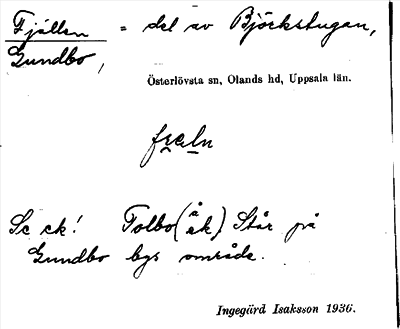 Fjällen = del av Björkstugan,
Gundbo,
Österlövsta sn, Olands hd, Uppsala län.
Se ek! Tolbo (åk) Står på
Gundbo bys område.
Ingegärd Isaksson 1936.